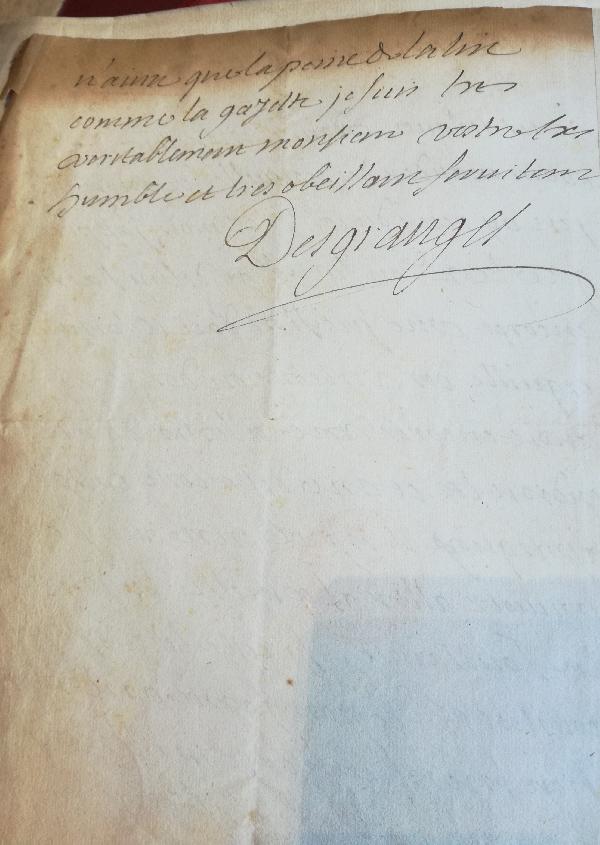 n'aura que la peine de la lire
comme la gazette je suis tres
veritablement monsieur vostre tres
humble et tres obeissant seruiteur
Desgranges